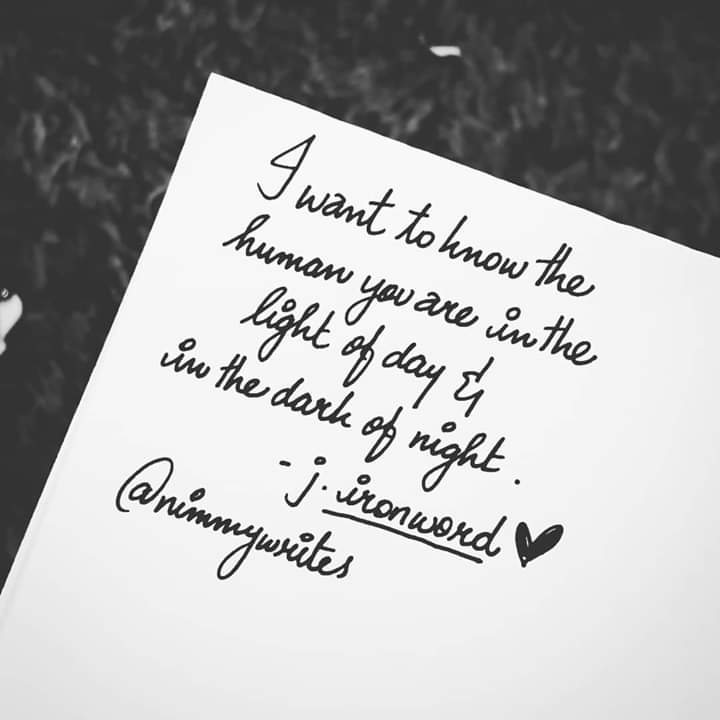 I want to know the
human you are in the
light of day &
in the dark of night.
- j. ironword
@nimmywrites